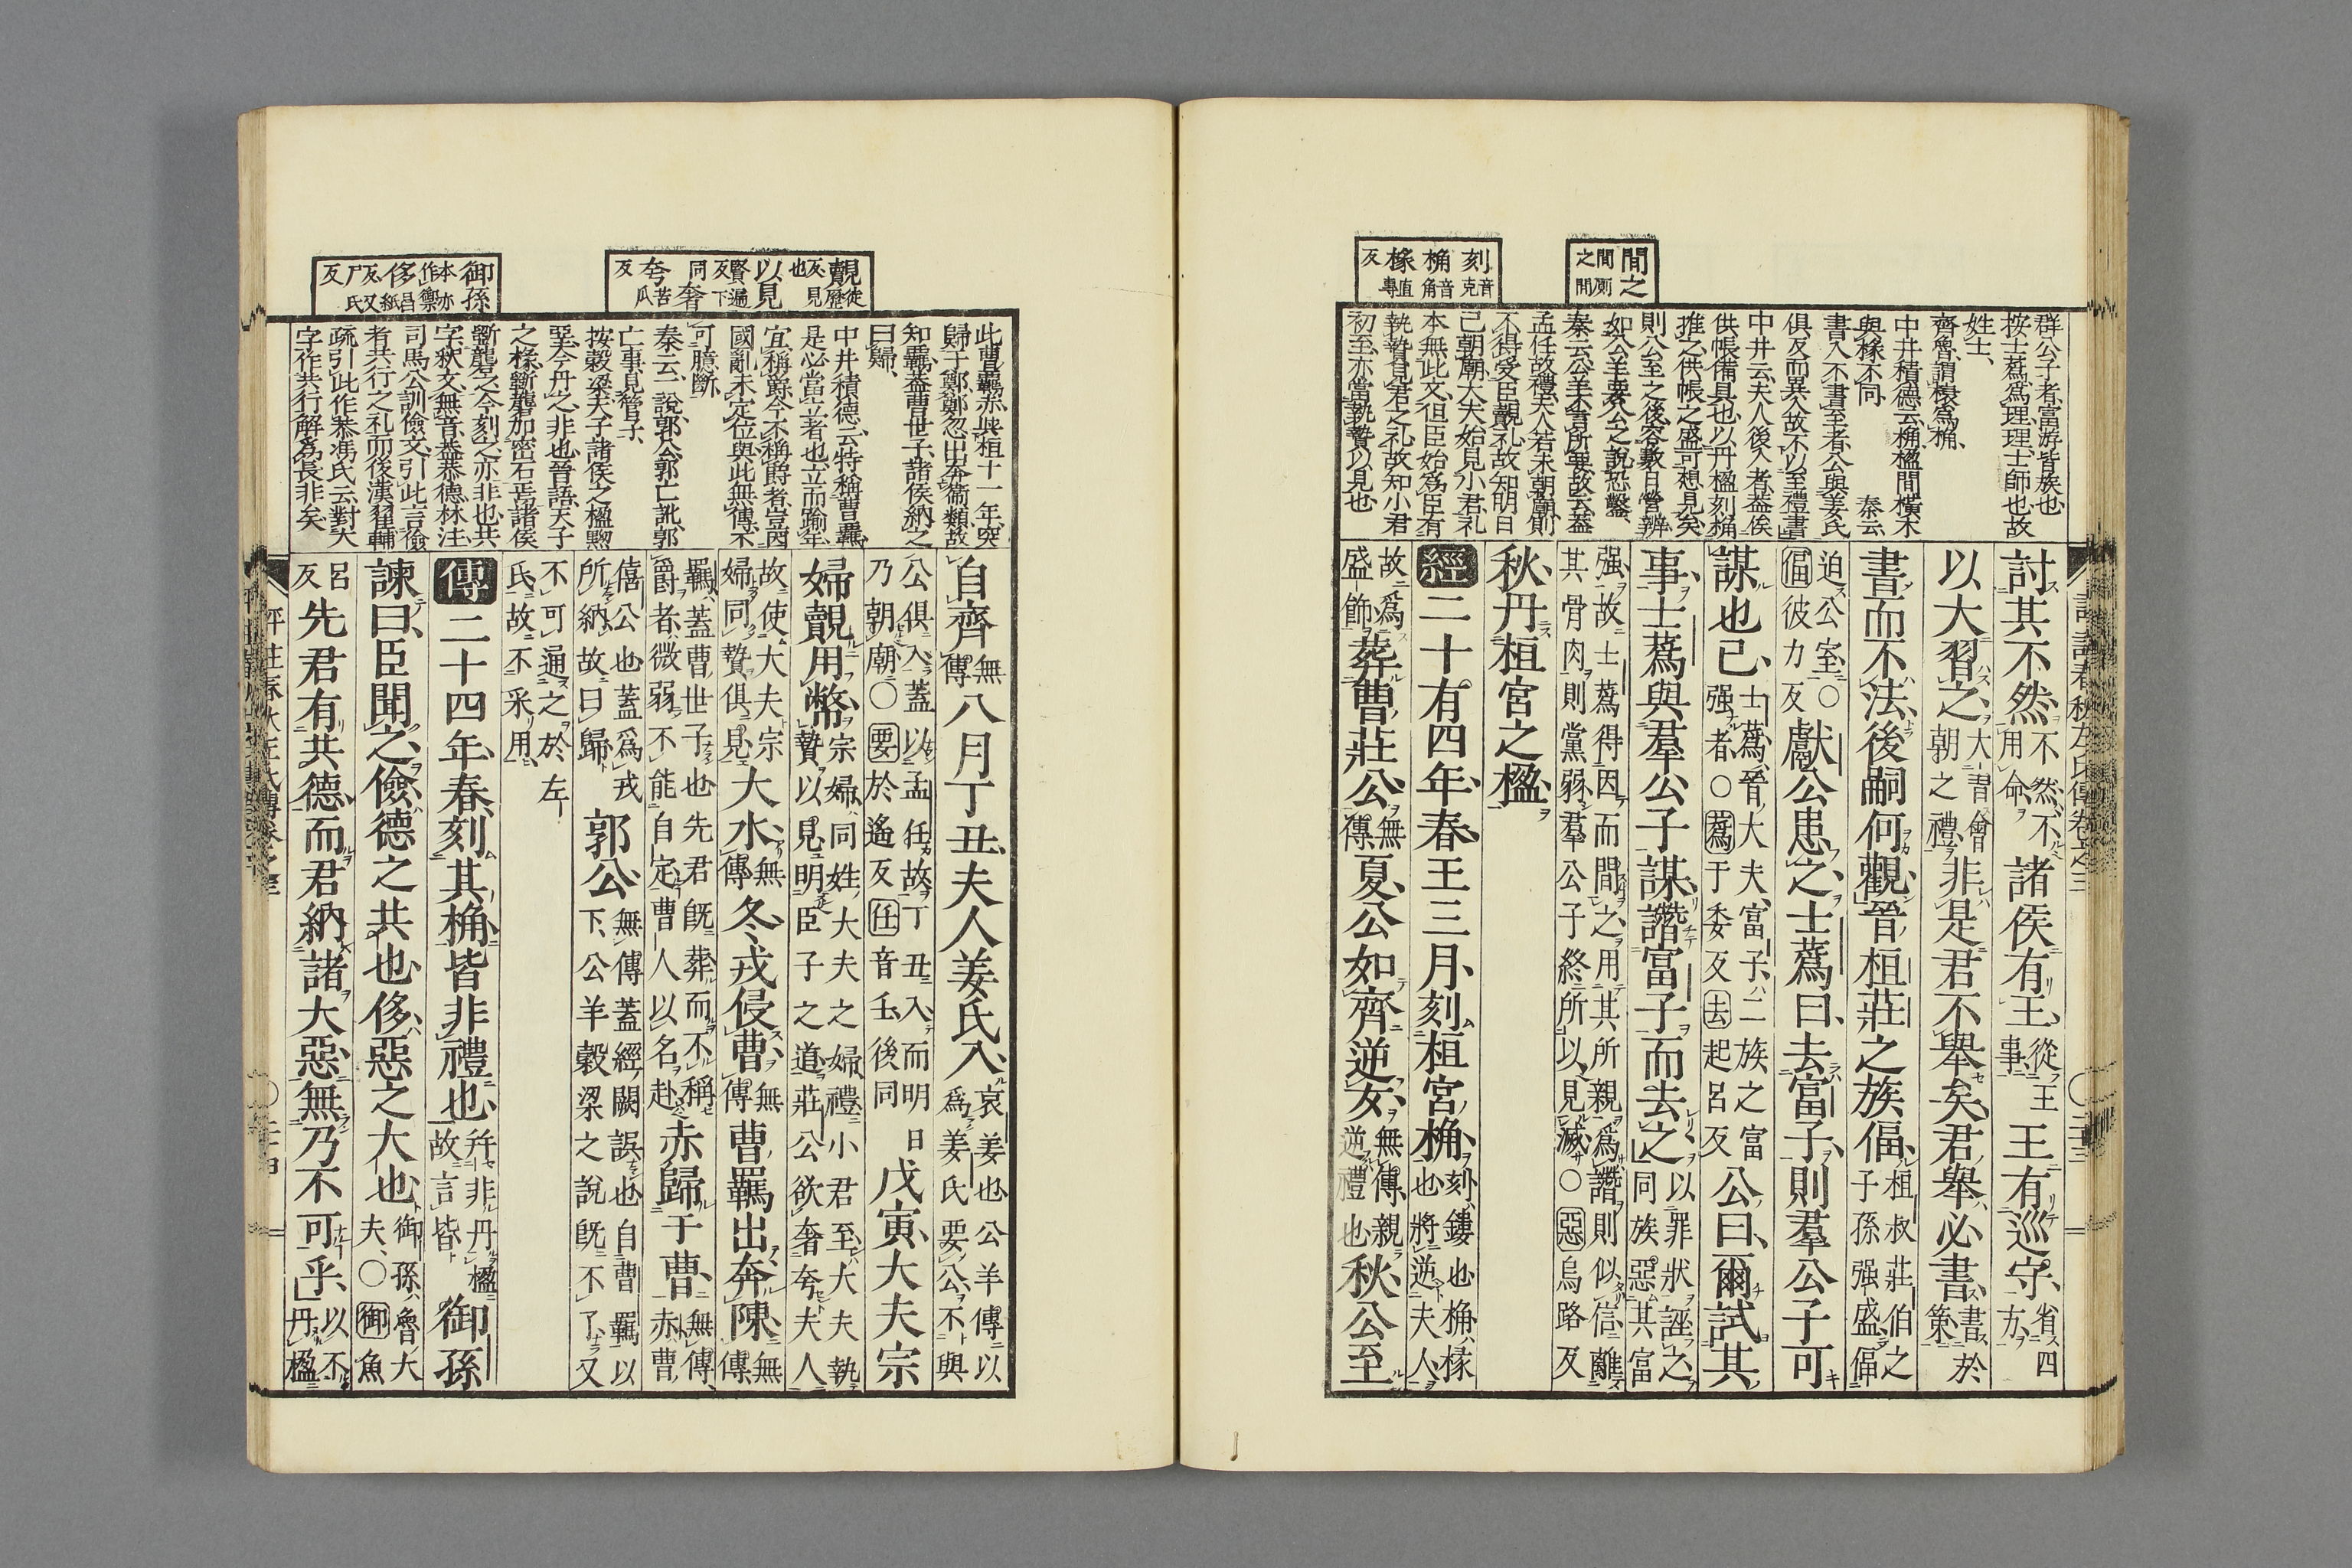 間之
間厠
之間
刻音克
桷音角
椽直專
反
群公子者富游皆族也
按士蔿爲理理士師也故
姓士
齊魯謂榱爲桷
中井積德云桷楹間橫木
與椽不同 秦云
書入不書至者公與姜氏
俱反而異入故不以至禮書
中井云夫人後入者蓋俟
供帳備具也以丹楹刻桷
推之供帳之盛可想見矣
則公至之後容數日營辨
如公羊要公之說恐鑿
秦云公羊不言所要故云蓋
孟任故禮夫人若未朝廟則
不得受臣覿礼故知明日
已朝廟大夫始見小君礼
本無此文但臣始爲臣有
執贄見君之礼故知小君
初至亦當執贄以見也
討其不然不然不用命諸侯有王從王事王有巡守省四方
以大習之大習會朝之禮非是君不舉矣君舉必書書於策
書而不法後嗣何觀晉桓莊之族偪桓叔莊伯之子孫强盛偪
迫公室○偪彼力反獻公患之士蔿曰去富子則羣公子可
謀也已士蔿晉大夫富子二族之富强者○蔿于委反去起呂反公曰爾試其
事士蔿與羣公子謀譖富子而去之以罪狀誣之同族惡其富
强故士蔿得因而間之用其所親爲譖則似信離其骨肉則黨弱羣公子終所以見滅○惡烏路反
秋丹桓宮之楹
經二十有四年春王三月刻桓宮桷刻鏤也桷椽也將逆夫人
故爲盛飾葬曹莊公無傳夏公如齊逆女無傳親逆禮也秋公至
覿徒歷反見也
以見賢遍反下同
奢
夸苦瓜反
御孫本亦作禦
侈昌紙反又尸氏反
此曹羈赤與桓十一年突
歸于鄭鄭忽出奔衞類故
知羈蓋曹世子諸侯納之
曰歸
中井積德云特稱曹羈
是必當立者也立而踰年
宜稱爵今不稱爵者豈因
國亂未定位與此無傳不
可臆斷
秦云一說郭公郭亡訛郭
亡事見管子
按穀梁天子諸侯之楹黝
堊今丹之非也晉語天子
之椽斲礱加密石焉諸侯
斲礱之今刻之亦非也共
字釈文無音蓋恭德林注
司馬公訓儉文引此言儉
者共行之礼而後漢翟輔
疏引此作恭馮氏云對大
字作共行解爲長非矣
自齊無傳八月丁丑夫人姜氏入哀姜也公羊傳以爲姜氏要公不與
公俱入蓋以孟任故丁丑入而明日乃朝廟○要於遙反任音壬後同戊寅大夫宗
婦覿用幣宗婦同姓大夫之婦禮小君至大夫執贄以見明臣子之道莊公欲奢夸夫人
故使大夫宗婦同贄俱見大水無傳冬戎侵曹無傳曹羈出奔陳無傳
羈蓋曹世子也先君既葬而不稱爵者微弱不能自定曹人以名赴赤歸于曹無傳赤曹
僖公也蓋爲戎所納故曰歸郭公無傳蓋經闕誤也自曹羈以下公羊穀梁之說既不了又
不可通之於左氏故不采用
傳二十四年春刻其桷皆非禮也幷非丹楹故言皆御孫
諫曰臣聞之儉德之共也侈惡之大也御孫魯大夫○御魚
呂反先君有共德而君納諸大惡無乃不可乎以不丹楹